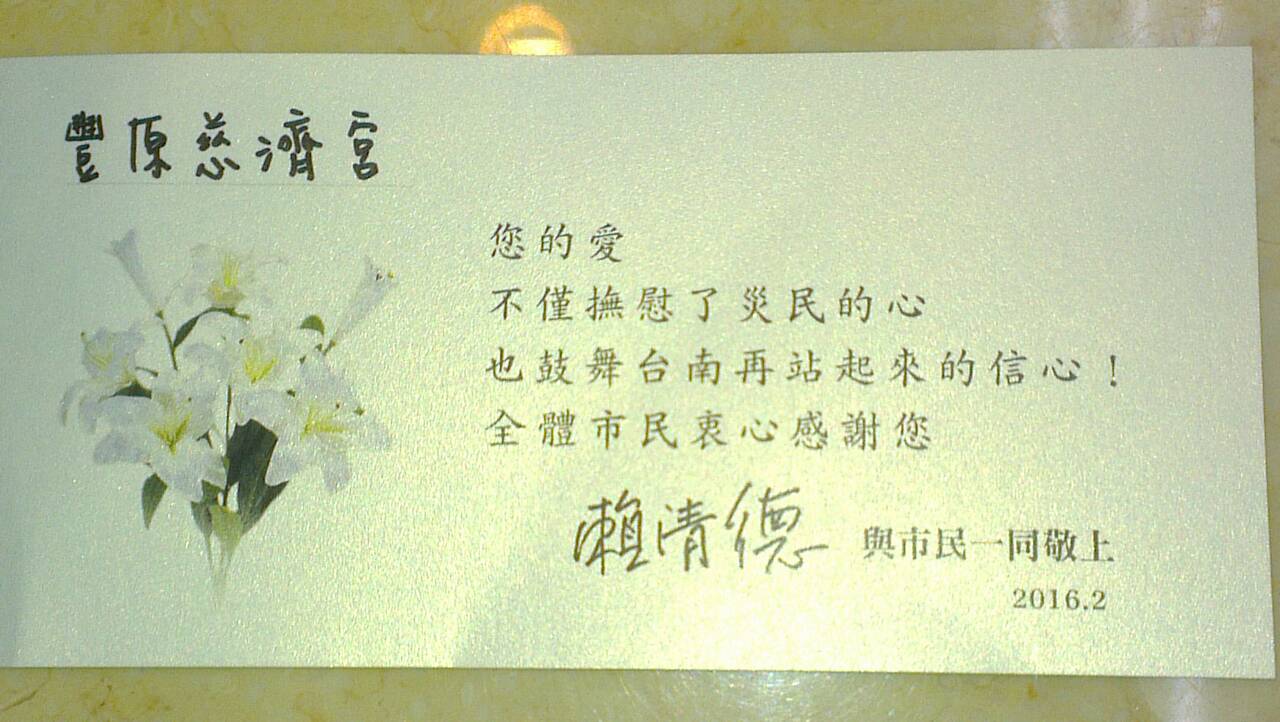 豐原慈濟宮
您的愛
不僅撫慰了災民的心
也鼓舞台南再站起來的信心！
全體市民衷心感謝您
賴清德 與市民一同敬上
2016.2